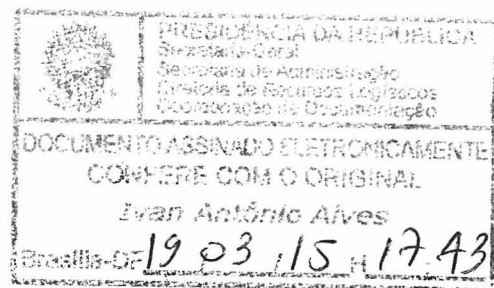 PRESIDÊNCIA DA REPÚBLICA
Secretaria-Geral
Secretaria de Administração
Diretoria de Recursos Logísticos
Coordenação de Documentação
DOCUMENTO ASSINADO ELETRONICAMENTE
CONFERE COM O ORIGINAL
Ivan Antônio Alves
Brasília-DF 19 03 / 15 H 17.43